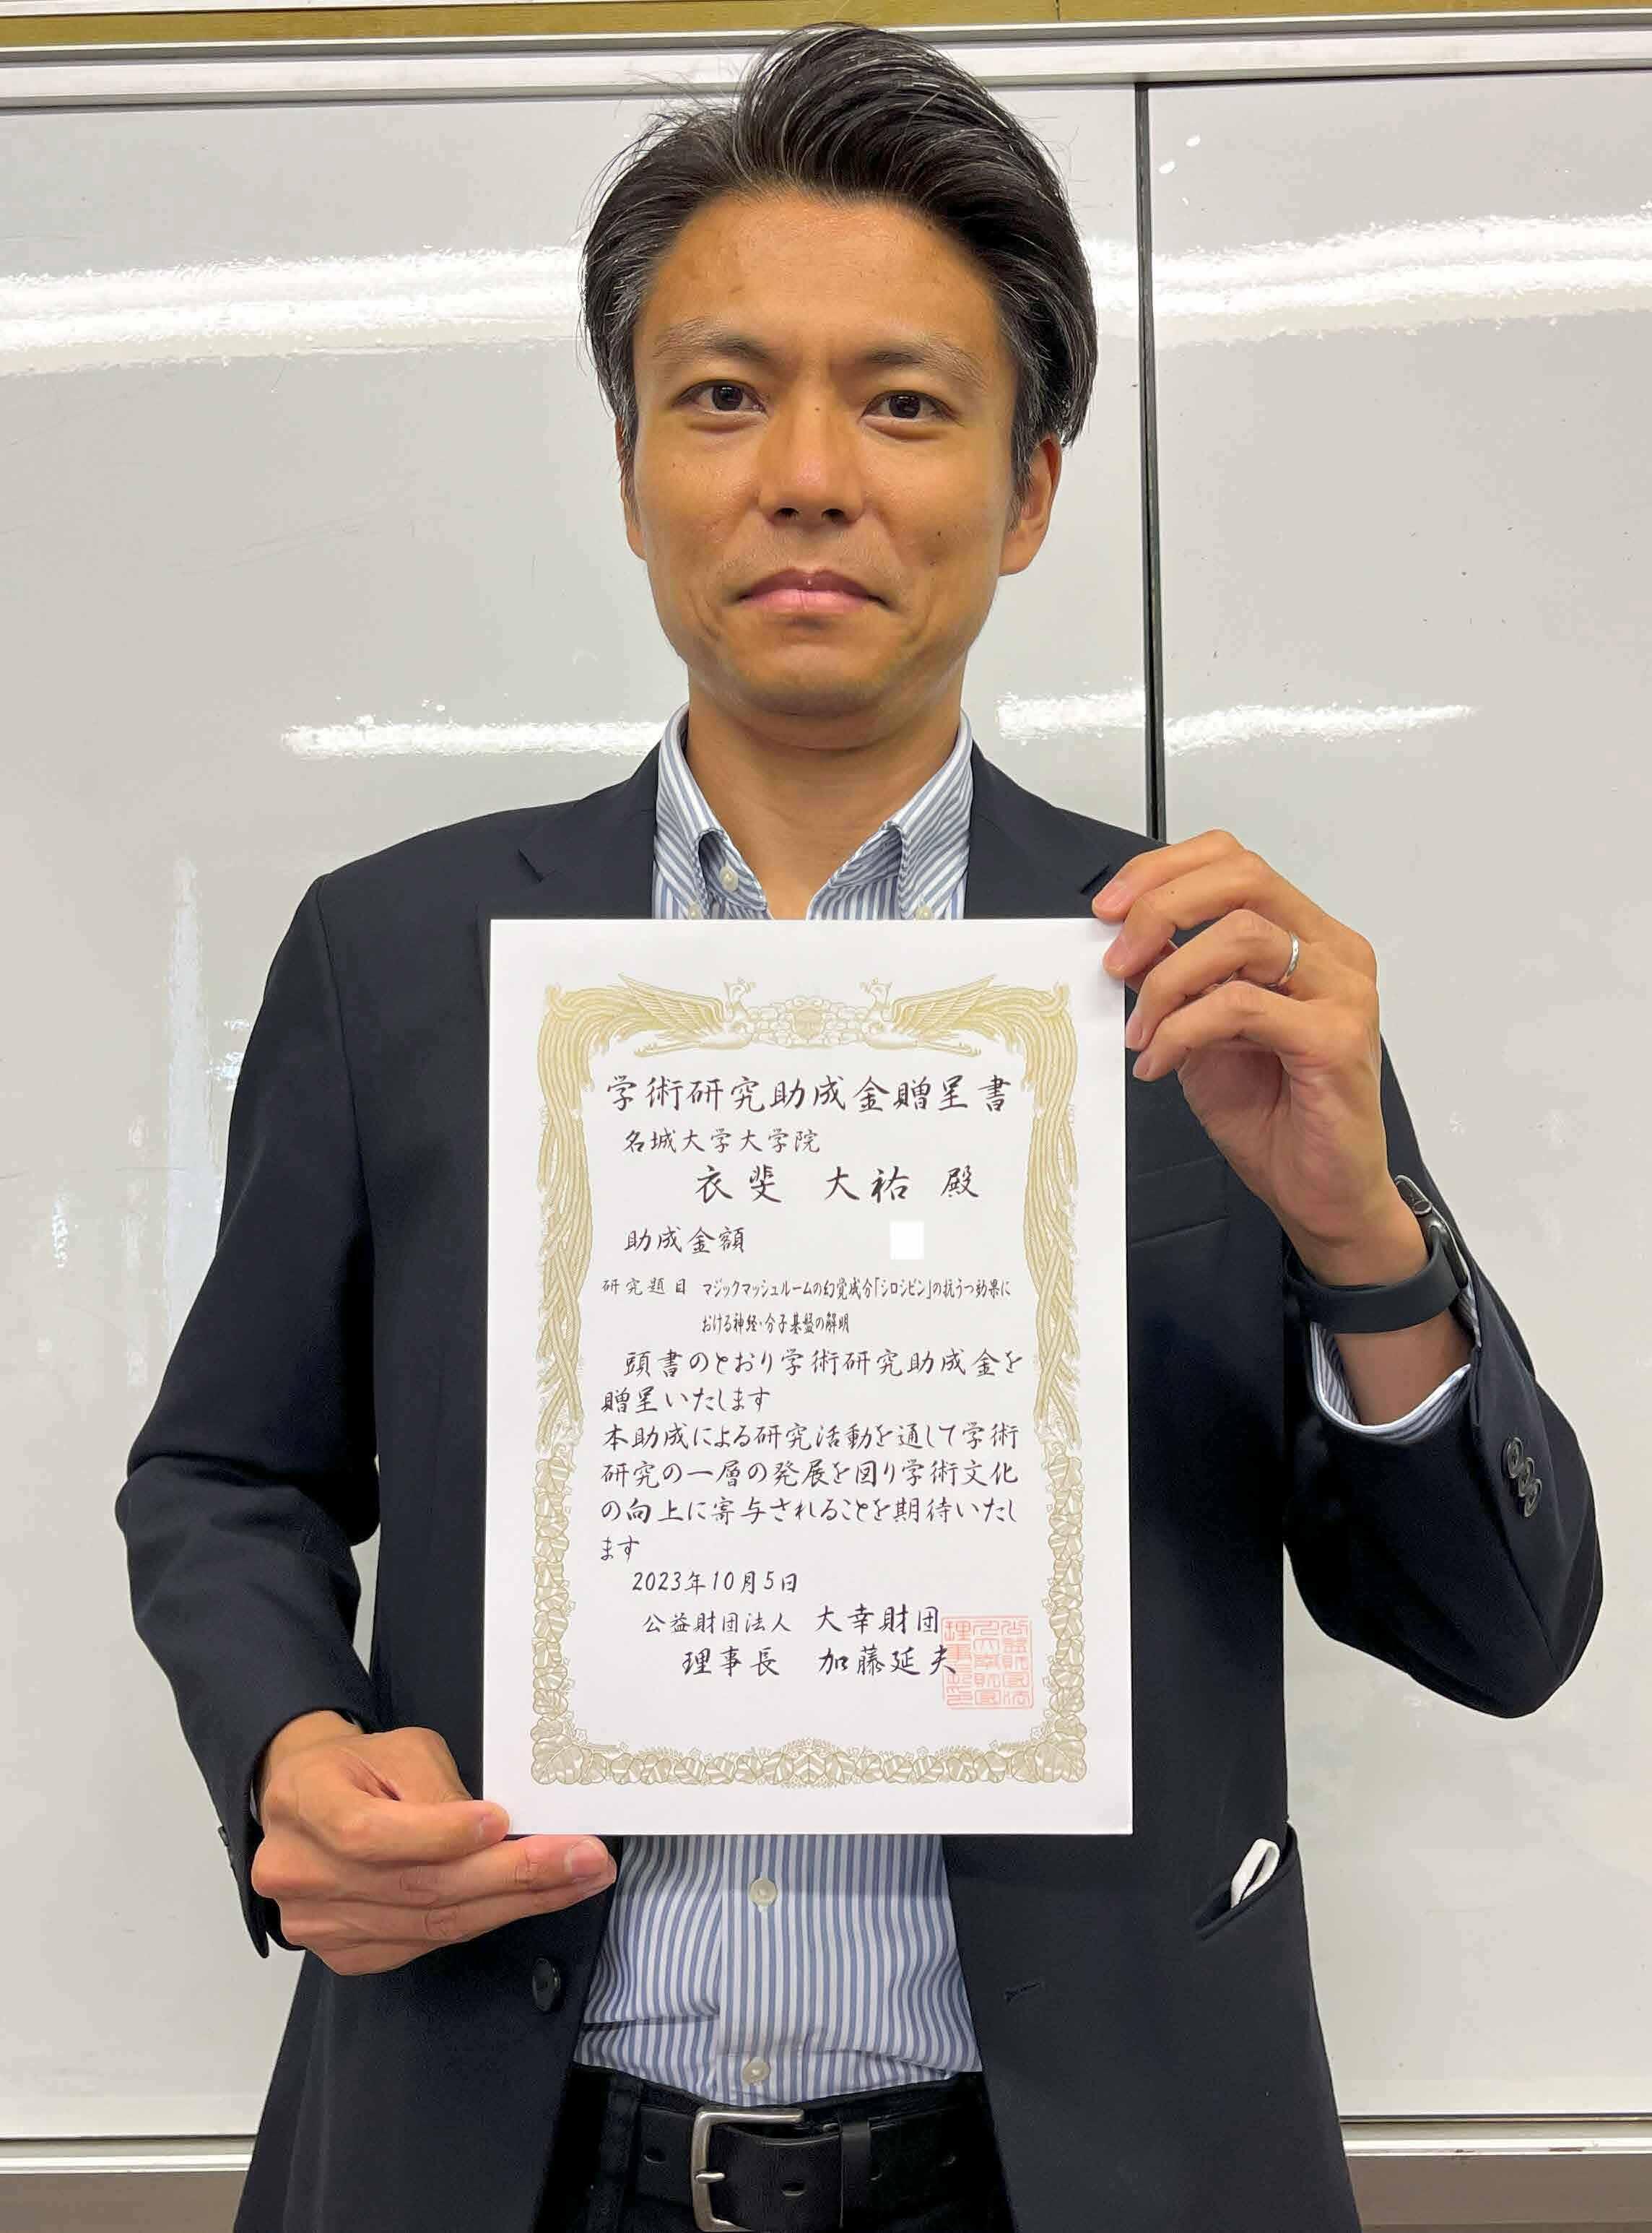 学術研究助成金贈呈書
名城大学大学院
衣斐 大祐 殿
助成金額
研究題目 マジックマッシュルームの幻覚成分「シロシビン」の抗うつ効果に
おける神経・分子基盤の解明
頭書のとおり学術研究助成金を
贈呈いたします
本助成による研究活動を通して学術
研究の一層の発展を図り学術文化
の向上に寄与されることを期待いたし
ます
2023年10月5日
公益財団法人 大幸財団
理事長 加藤延夫